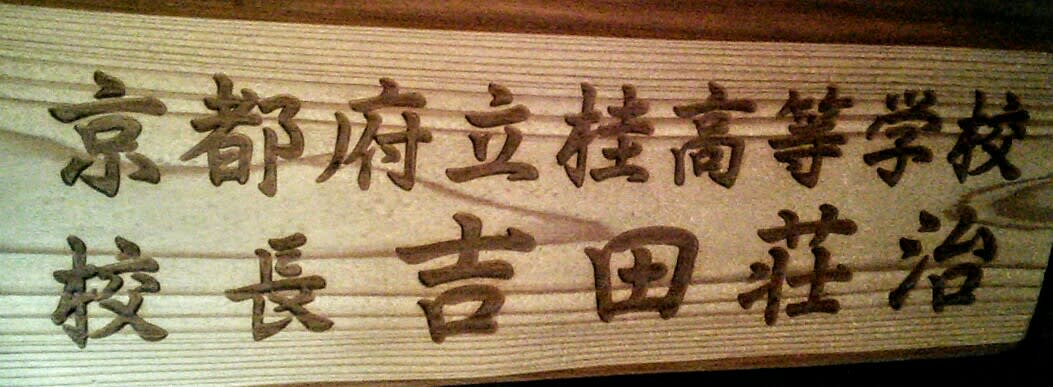 京都府立桂高等学校
校長吉田荘治